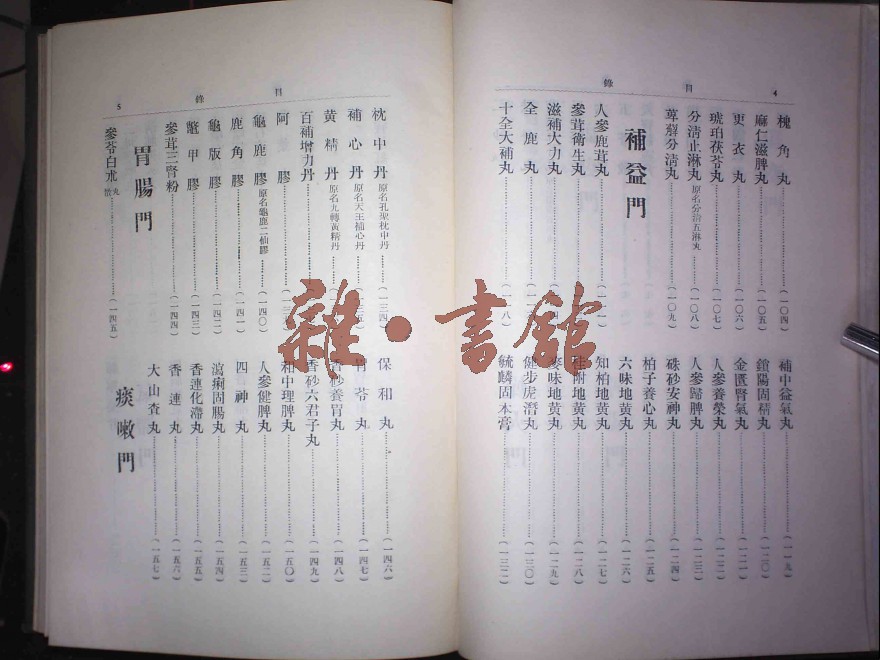 目錄
4
槐角丸(一〇四)
麻仁滋脾丸(一〇五)
更衣丸(一〇六)
琥珀茯苓丸(一〇七)
分清止淋丸原名分清五淋丸(一〇八)
萆薢分清丸(一〇九)
補益門
人參鹿茸丸(一一一)
參茸衛生丸
滋補大力丸
全鹿丸
十全大補丸(一一八)
補中益氣丸(一一九)
鎖陽固精丸(一二〇)
金匱腎氣丸(一二一)
人參養榮丸(一二二)
人參歸脾丸(一二三)
硃砂安神丸(一二四)
柏子養心丸(一二五)
六味地黃丸(一二六)
知柏地黃丸(一二七)
桂附地黃丸(一二八)
麥味地黃丸(一二九)
健步虎潛丸(一三〇)
毓麟固本膏(一三二)
目錄
5
枕中丹原名孔聖枕中丹(一三四)
補心丹原名天王補心丹
黃精丹原名九轉黃精丹
百補增力丹
阿膠
龜鹿膠原名龜鹿二仙膠(一四〇)
鹿角膠(一四一)
龜版膠(一四二)
鼈甲膠(一四三)
參茸三腎粉(一四四)
胃腸門
參苓白朮丸散(一四五)
保和丸(一四六)
胃苓丸(一四七)
香砂養胃丸(一四八)
香砂六君子丸(一四九)
和中理脾丸(一五〇)
人參健脾丸(一五二)
四神丸(一五三)
瀉痢固腸丸(一五四)
香連化滯丸(一五五)
香連丸(一五六)
大山查丸(一五七)
痰嗽門
雜·書館